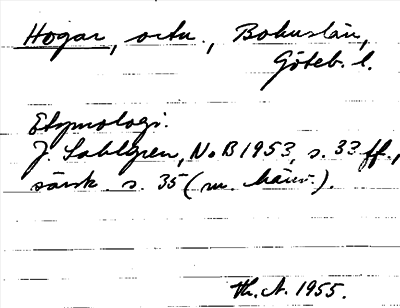 Hogar, ortn., Bohuslän,
Göteb. l.
Etymologi.
J. Sahlgren, NoB 1953, s. 33 ff.,
särsk. s. 35 (m. hänv.).
Th. A. 1955.